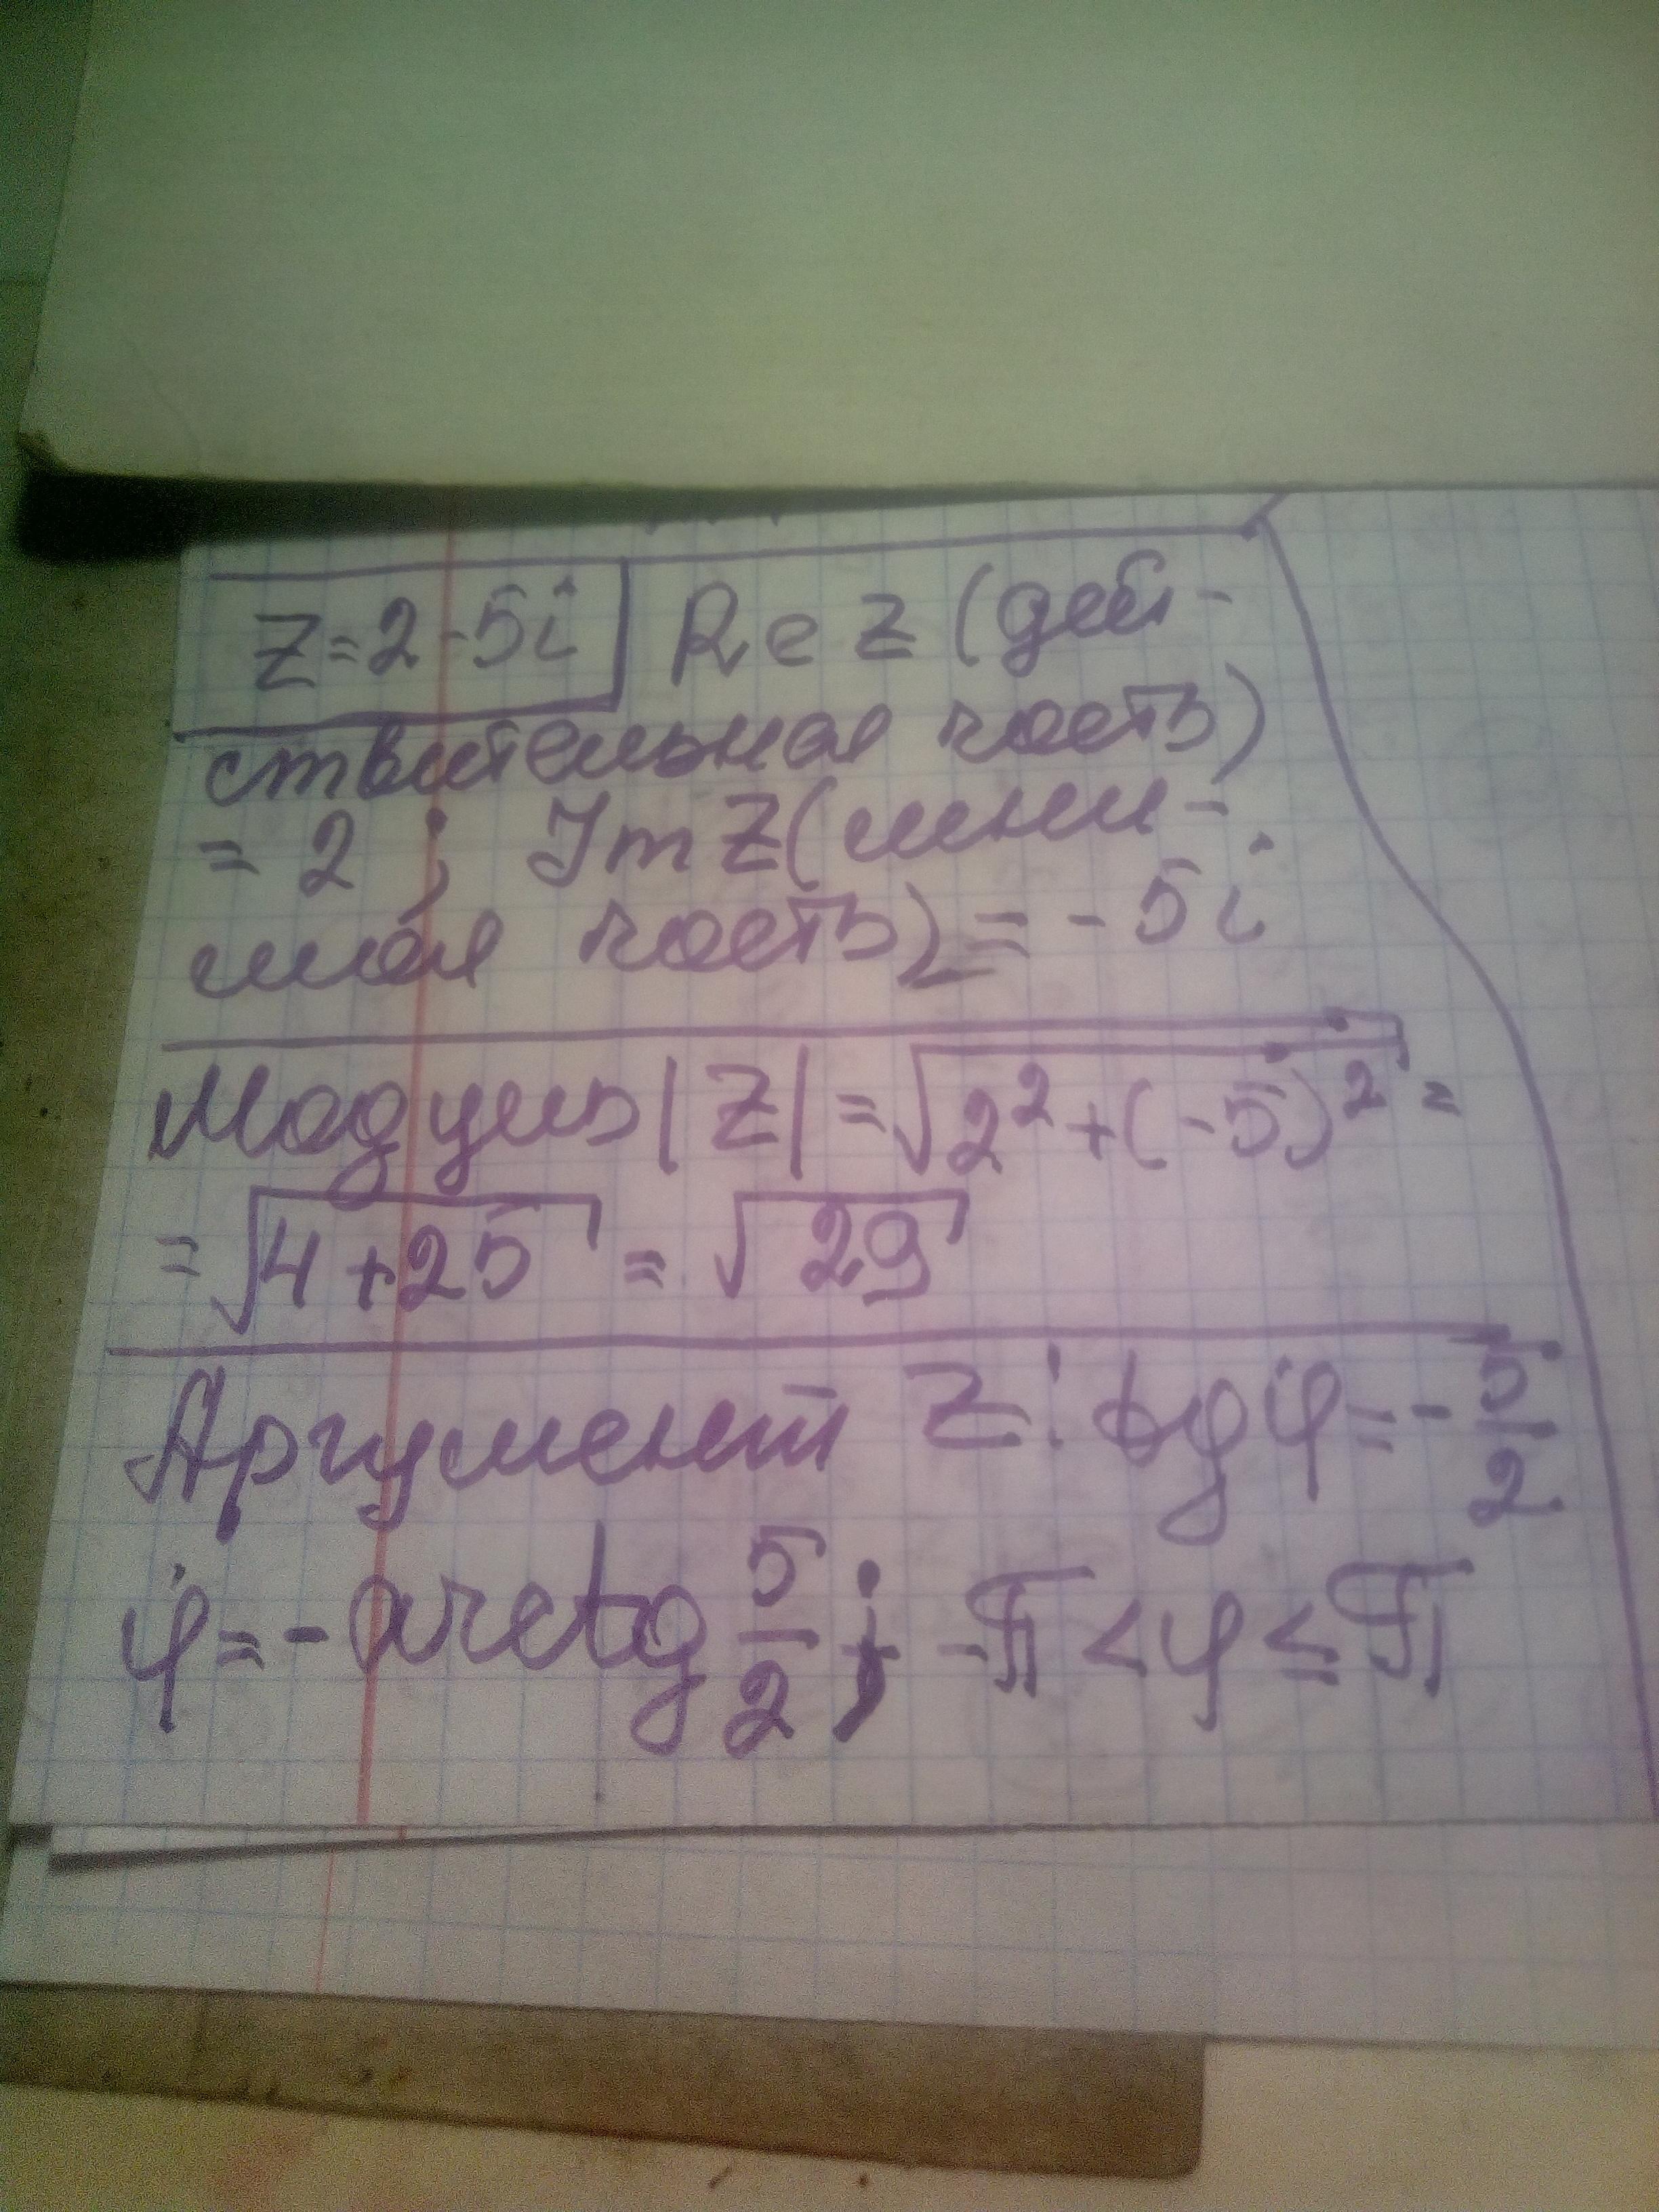 Z=2-5i Re Z (дей-
ствительная часть)
= 2 ; Im Z (мни-
мая часть) = - 5i
Модуль |Z| = √2² + (-5)² =
= √4+25 = √29
Аргумент Z: tg φ = - 5/2
φ = - arctg 5/2 ; -π < φ ≤ π